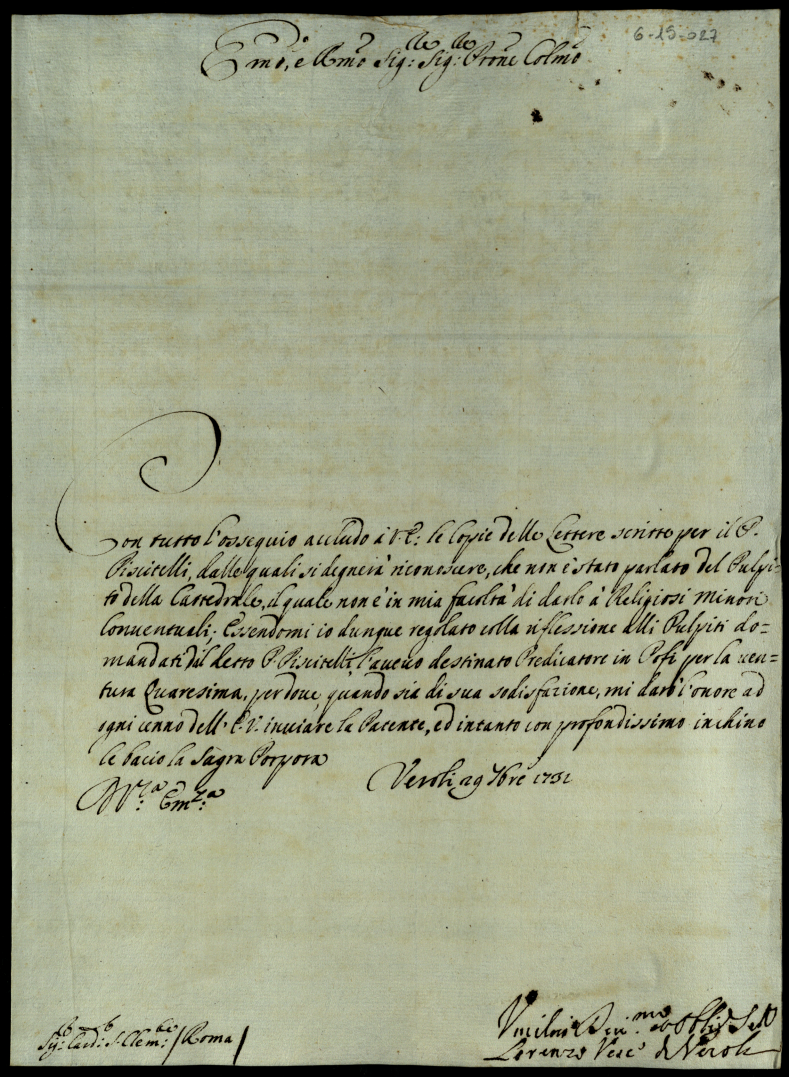 6-15-027
Emo, e Rmo Sig:re Sig:re Prone Colmo
Con tutto l'ossequio accludo à V. E: le Copie delle Lettere scritte per il P.
Piscitelli, dalle quali si degnerà riconoscere, che non è stato parlato del Pulpi=
to della Cattedrale, il quale non è in mia facoltà di darlo à Religiosi minori
Conventuali; Essendomi io dunque regolato colla riflessione alli Pulpiti do=
mandati dal detto P. Piscitelli, l'avevo destinato Predicatore in Pofi per la ven=
tura Quaresima, per dove, quando sia di sua sodisfazione, mi darò l'onore ad
ogni cenno dell' E. V. inviare la Patente, ed intanto con profondissimo inchino
le bacio la Sagra Porpora
D V:ra Em:za
Veroli 29 7bre 1731
Sig: Card: S. Clem:te / Roma /
Umilmo Devmo ed Obblig
Lorenzo Vesc° di Veroli